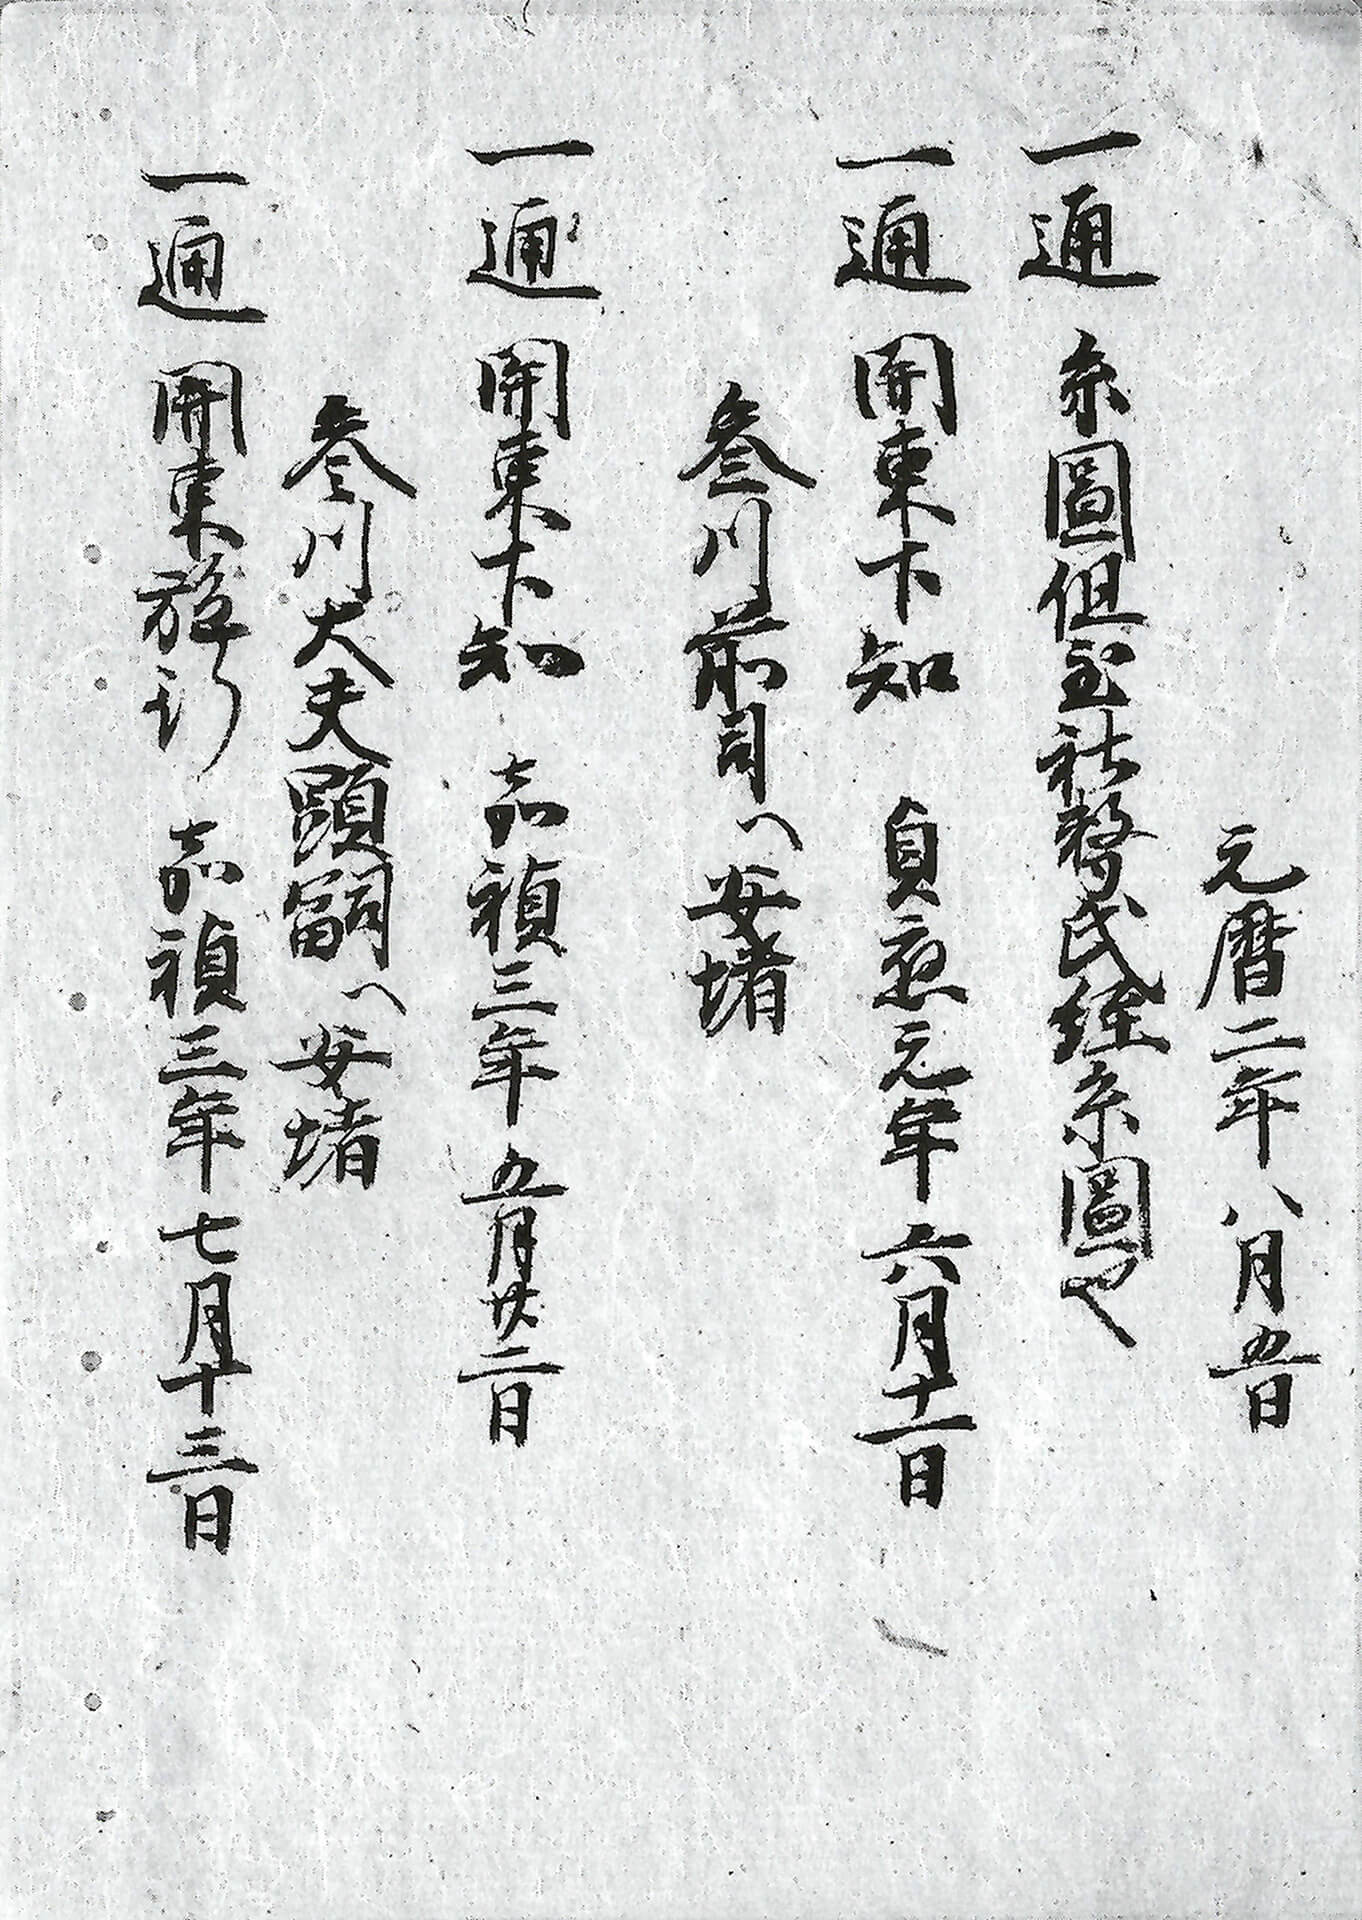 元暦二年八月五日
一通　系圖但至社務氏経系圖也
一通　関東下知　貞應元年六月十一日
参川前司へ安堵
一通　関東下知　嘉禎三年五月廿二日
参川大夫顕嗣へ安堵
一通　関東施行　嘉禎三年七月十三日